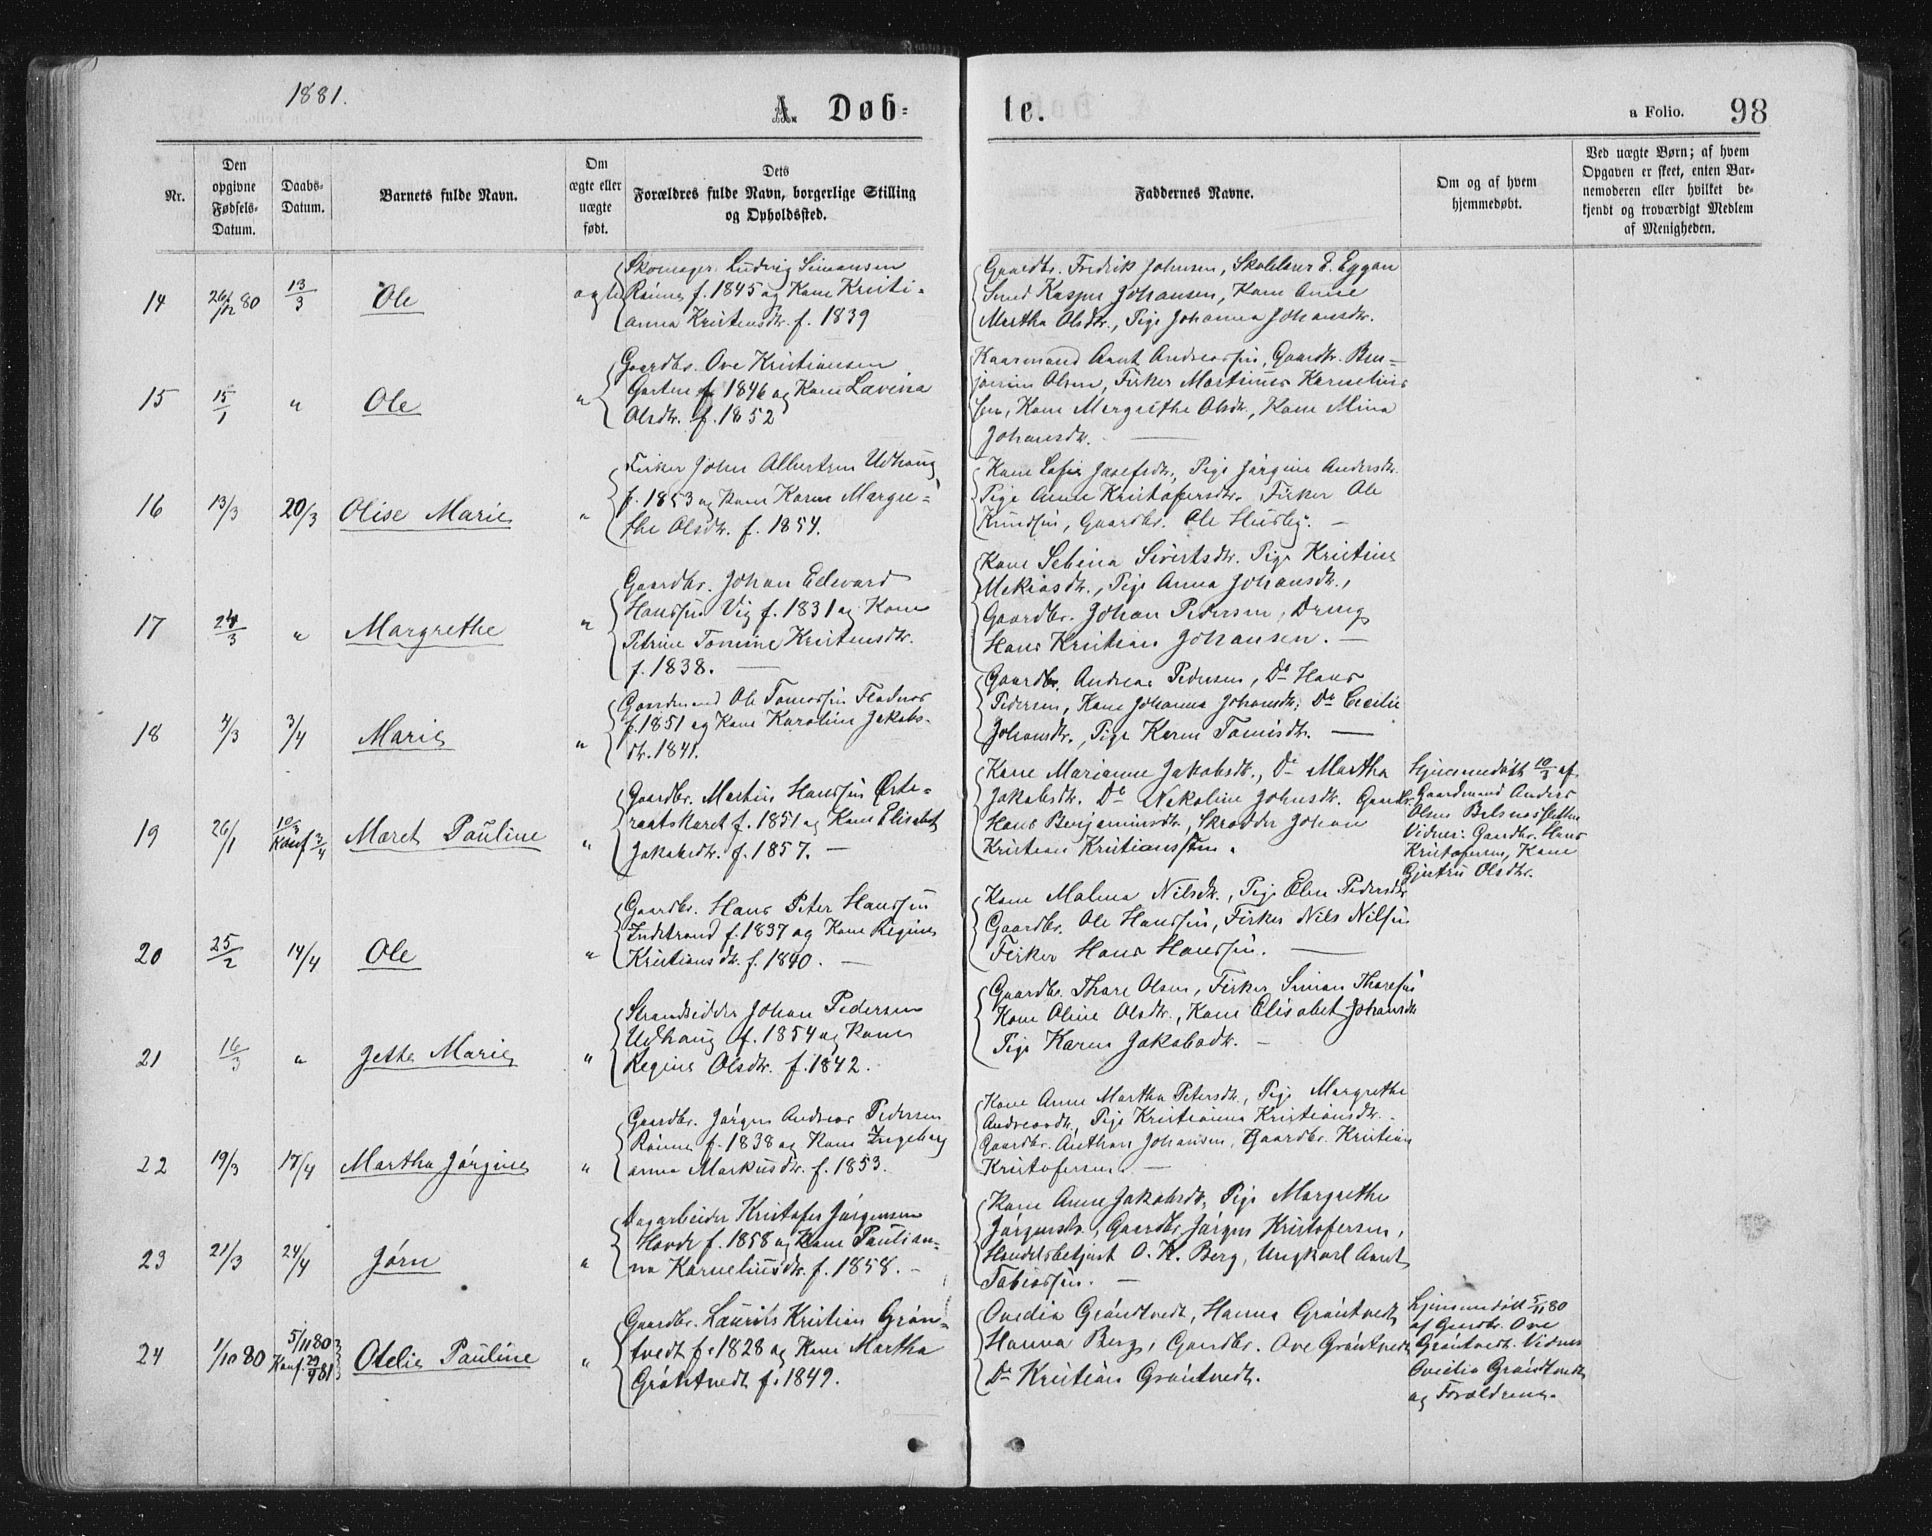 1881.
A. Døb-
te.
a Folio. 98
Nr.
Den opgivne Fødsels-Datum.
Daabs-Datum.
Barnets fulde Navn.
Om ægte eller uægte født.
Dets Forældres fulde Navn, borgerlige Stilling og Opholdssted.
Faddernes Navne.
Om og af hvem hjemmedøbt.
Ved uægte Børn; af hvem Opgaven er skeet, enten Barnemoderen eller hvilket bekjendt og troværdigt Medlem af Menigheden.
14 26/12 80 13/3 Ole ægte
Skomager Ludvig Simonsen
Rønne f. 1845 og Kone Kristi-
anna Kristensdtr. f. 1839
Gaardbr. Fredrik Johnsen, Skolelærer E. Eggan
Smed Kasper Johansen, Kone Anne
Martha Olsdtr., Pige Johanna Johansdtr.
15 15/1 " Ole "
Gaardbr. Ove Kristiansen
Garten f. 1846 og Kone Lavina
Olsdtr. f. 1852
Kaarmand Arnt Andreassen, Gaardbr. Ben-
jamin Olsen, Fisker Martinus Kornelius
sen, Kone Margrethe Olsdtr., Kone Mina
Johansdtr.
16 13/3 20/3 Olise Marie "
Fisker John Albertsen Udhaug
f. 1853 og Kone Karen Margre-
the Olsdtr. f. 1854.
Kone Sofie Josefsdtr., Pige Jørgine Andersdtr.
Pige Anne Kristofersdtr. Fisker Ole
Knudsen, Gaardbr. Ole Husby. —
17 24/3 " Margrethe "
Gaardbr. Johan Edvard
Hanssen Vig f. 1831 og Kone
Petrine Tomine Kristensdtr.
f. 1838. —
Kone Sebina Sivertsdtr. Pige Kristine
Mekiasdtr., Pige Anna Johansdtr.,
Gaardbr. Johan Pedersen, Dreng
Hans Kristian Johansen. —
18 4/3 3/4 Marie "
Gaardmand Ole Tomassen
f. 1851 og Kone Karoline Jakobs-
dtr. 1841.
Gaardbr. Andreas Pedersen, Do Hans
Pedersen, Kone Johanna Johansdtr., Do Cecilie
Johansdtr., Pige Karen Tomisdtr. —
19 26/1 10/3 Konf 3/4 Maret Pauline "
Gaardbr. Martin Hanssen Øste-
raatskaret f. 1851 og Kone Elisabet
Jakobsdtr. f. 1857. —
Kone Marianne Jakobsdtr., Do Martha
Jakobsdtr. Do Nekoline Johnsdtr. Gaardbr.
Hans Benjaminsdtr., Skrædder Johan
Kristian Kristianssen.
Hjemmedøbt 10/3 af
Gaardmand Anders
Olsen
Vidner: Gaardbr. Hans
Kristofersen, Kone
Gjertru Olsdtr.
20 25/2 14/4 Ole "
Gaardbr. Hans Peter Hanssen
Indstrand f. 1837 og Kone Regine
Kristiansdtr. f. 1840. —
Kone Malena Nilsdtr., Pige Elen Pedersdtr.
Gaardbr. Ole Hanssen, Fisker Nils Nilsen
Fisker Hans Hanssen. —
21 16/3 " Jette Marie "
Strandsidder Johan Pedersen
Udhaug f. 1854 og Kone
Regine Olsdtr. f. 1842.
Gaardbr. Thore Olsen, Fisker Simon Thoresen
Kone Oline Olsdtr., Kone Elisabet Johansdtr
Pige Karen Jakobsdtr. —
22 19/3 17/4 Martha Jørgine "
Gaardbr. Jørgen Andreas Pedersen
Rønne f. 1838 og Kone Ingeborg
anna Markusdtr. f. 1853.
Kone Anne Martha Petersdtr., Pige Margrethe
Andreasdtr., Pige Kristianna Kristiansdtr.
Gaardbr. Anthon Johansen, Gaardbr. Kristian
Kristofersen. —
23 21/3 24/4 Jørn "
Dagarbeider Kristofer Jørgensen
Hovde f. 1858 og Kone Paulian-
na Korneliusdtr. f. 1858. —
Kone Anne Jakobsdtr., Pige Margrethe
Jørgensdtr., Gaardbr. Jørgen Kristofersen,
Handelsbetjent O. K. Berg, Ungkarl Arnt
Tobiassen. —
24 1/10 80 5/11 80 Konf. 29/4 81 Otelie Pauline "
Gaardbr. Laurits Kristian Grøn-
tvedt f. 1828 og Kone Martha
Grøntvedt f. 1849.
Ovedia Grøntvedt, Hanna Grøntvedt
Hanna Berg, Gaardbr. Ove Grøntvedt
Do Kristian Grøntvedt.
Hjemmedøbt 5/11 80
af Gaardbr. Ove
Grøntvedt. Vidner
Ovedia Grøntvedt
og Forældrene.